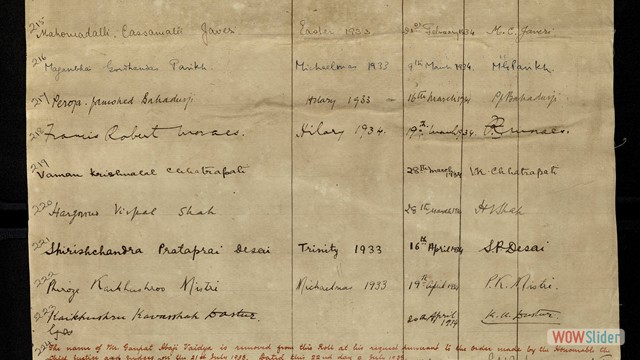 215 Mahomadalli Cassamalli Javeri Easter 1933 28th February 1934 M. C. Javeri
216 Maganbhai Gordhandas Parikh Michaelmas 1933 9th March 1934 MGParikh
217 Peroja Jamshed Bahadurji Hilary 1933 - 16th March 1934 PJ Bahadurji
218 Francis Robert Moraes. Hilary 1934. 19th March 1934. Moraes.
219 Vaman Krishnalal Chhatrapati 28th March 1934 VK. Chhatrapati
220 Hargovind Shah 28th March 1934 Shah
221 Shirishchandra Prataprai Desai Trinity 1933 16th April 1934 S.P. Desai
222 Phiroze Kaikhushroo Mistri Michaelmas 1933 19th April 1934 P. K. Mistri.
223 Kaikhushru Kavasshah Dastur 20th April 1934 K. K. Dastur
The name of Mr. Ganpat Abaji Vaidya is removed from this Roll at his request pursuant to the order made by the Honourable the
Chief Justice and Judges on the 21st July 1938. Dated this 22nd day of July 1938.
WOWSlider